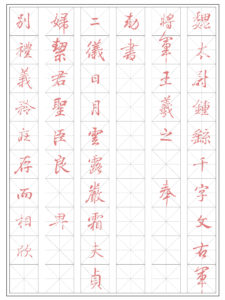 魏太尉鍾繇千字文右軍
將軍王羲之奉
勑書
二儀日月雲露嚴霜夫貞
婦絜君聖臣良卑
別禮義矜莊存而相欣